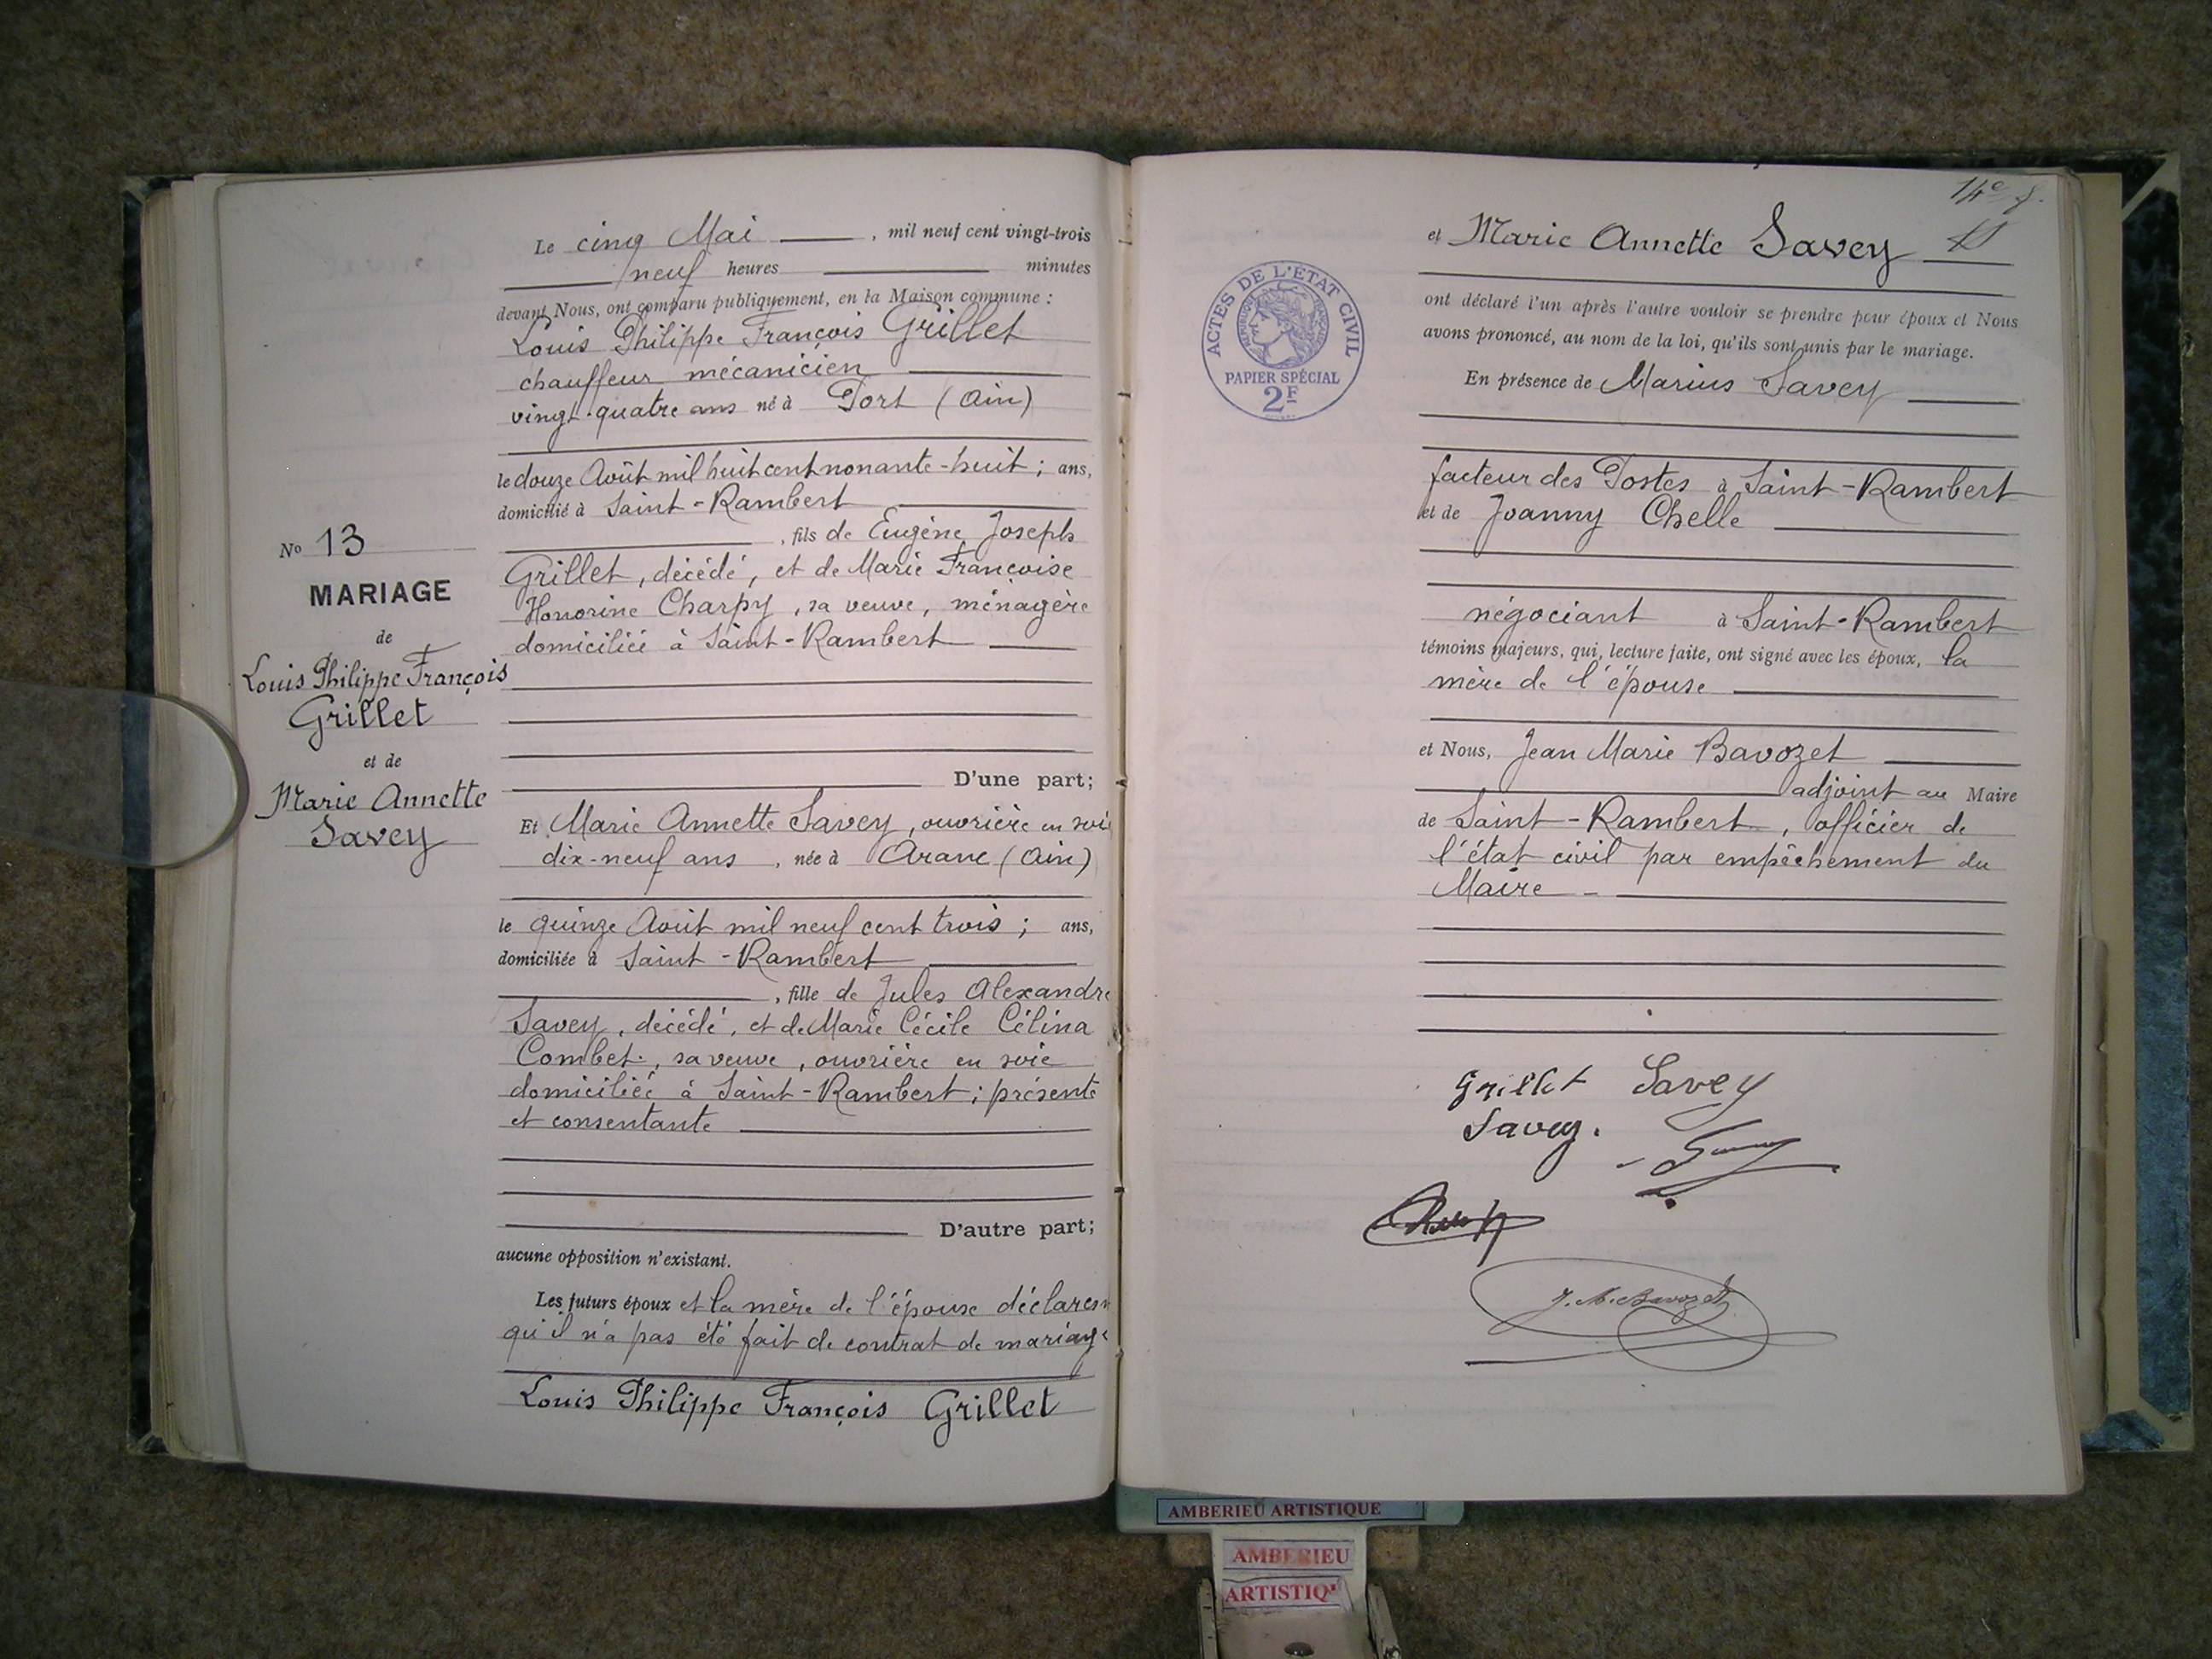 No 13
MARIAGE
de
Louis Philippe François
Grillet
et de
Marie Annette
Savey
Le cinq Mai , mil neuf cent vingt-trois
neuf heures minutes
devant Nous, ont comparu publiquement, en la Maison commune :
Louis Philippe François Grillet
chauffeur mécanicien
vingt-quatre ans né à Port (Ain)
le douze Août mil huit cent nonante-huit ; ans,
domicilié à Saint-Rambert
, fils de Eugène Joseph
Grillet, décédé, et de Marie Françoise
Honorine Charpy, sa veuve, ménagère
domiciliée à Saint-Rambert
D'une part;
Et Marie Annette Savey, ouvrière en soie
dix-neuf ans , née à Aranc (Ain)
le quinze Août mil neuf cent trois ; ans,
domiciliée à Saint-Rambert
, fille de Jules Alexandre
Savey, décédé, et de Marie Cécile Célina
Combet, sa veuve, ouvrière en soie
domiciliée à Saint-Rambert ; présente
et consentante
D'autre part;
aucune opposition n'existant.
Les futurs époux et la mère de l'épouse déclarent
qu'il n'a pas été fait de contrat de mariage
Louis Philippe François Grillet
14e f.
et Marie Annette Savey
ACTES DE L'ÉTAT CIVIL
PAPIER SPÉCIAL
2F
ont déclaré l'un après l'autre vouloir se prendre pour époux et Nous
avons prononcé, au nom de la loi, qu'ils sont unis par le mariage.
En présence de Marius Savey
facteur des Postes à Saint-Rambert
et de Joanny Chelle
négociant à Saint-Rambert
témoins majeurs, qui, lecture faite, ont signé avec les époux, la
mère de l'épouse
et Nous, Jean Marie Bavozet
adjoint au Maire
de Saint-Rambert, officier de
l'état civil par empêchement du
Maire
Grillet Savey
Savey.
J. M. Bavozet
AMBERIEU ARTISTIQUE
AMBERIEU
ARTISTIQ